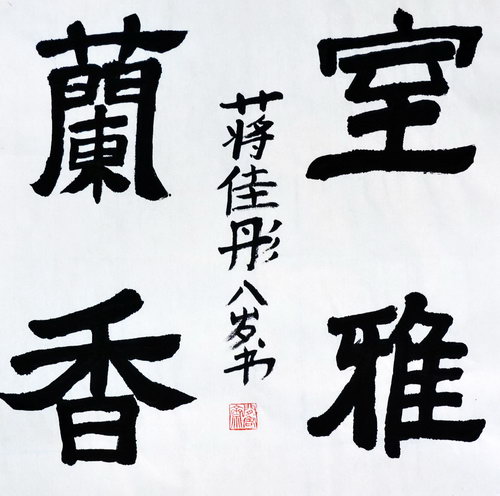 室雅
蘭香
蒋佳彤八岁书